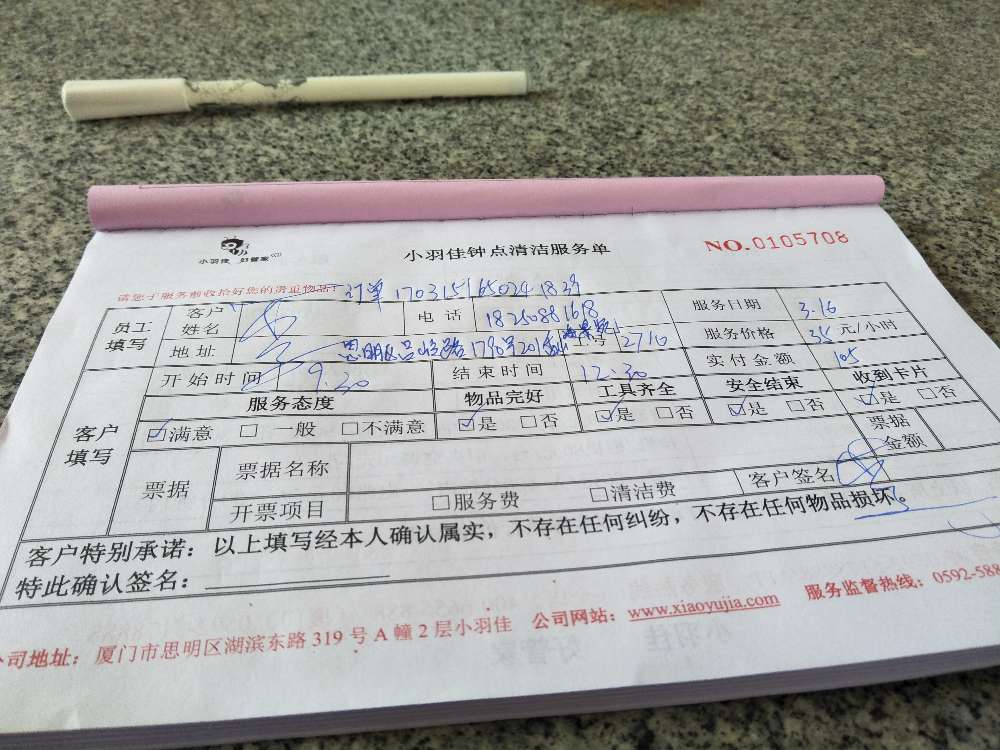 小羽佳 好管家
小羽佳钟点清洁服务单
NO.0105708
请您于服务前收拾好您的贵重物品!
订单 17031516502418号
员工填写 客户姓名 电话 18250881618 服务日期 3.16
地址 思明区吕岭路1798号201 工号 2716 服务价格 35 元/小时
客户填写 开始时间 9.30 结束时间 12:30 实付金额 105
服务态度 物品完好 工具齐全 安全结束 收到卡片
☑满意 □一般 □不满意 ☑是 □否 ☑是 □否 ☑是 □否 ☑是 □否
票据 票据名称 票据金额
开票项目 □服务费 □清洁费 客户签名
客户特别承诺：以上填写经本人确认属实，不存在任何纠纷，不存在任何物品损坏。
特此确认签名：
公司地址：厦门市思明区湖滨东路 319 号 A 幢 2 层小羽佳 公司网站：www.xiaoyujia.com 服务监督热线：0592-588